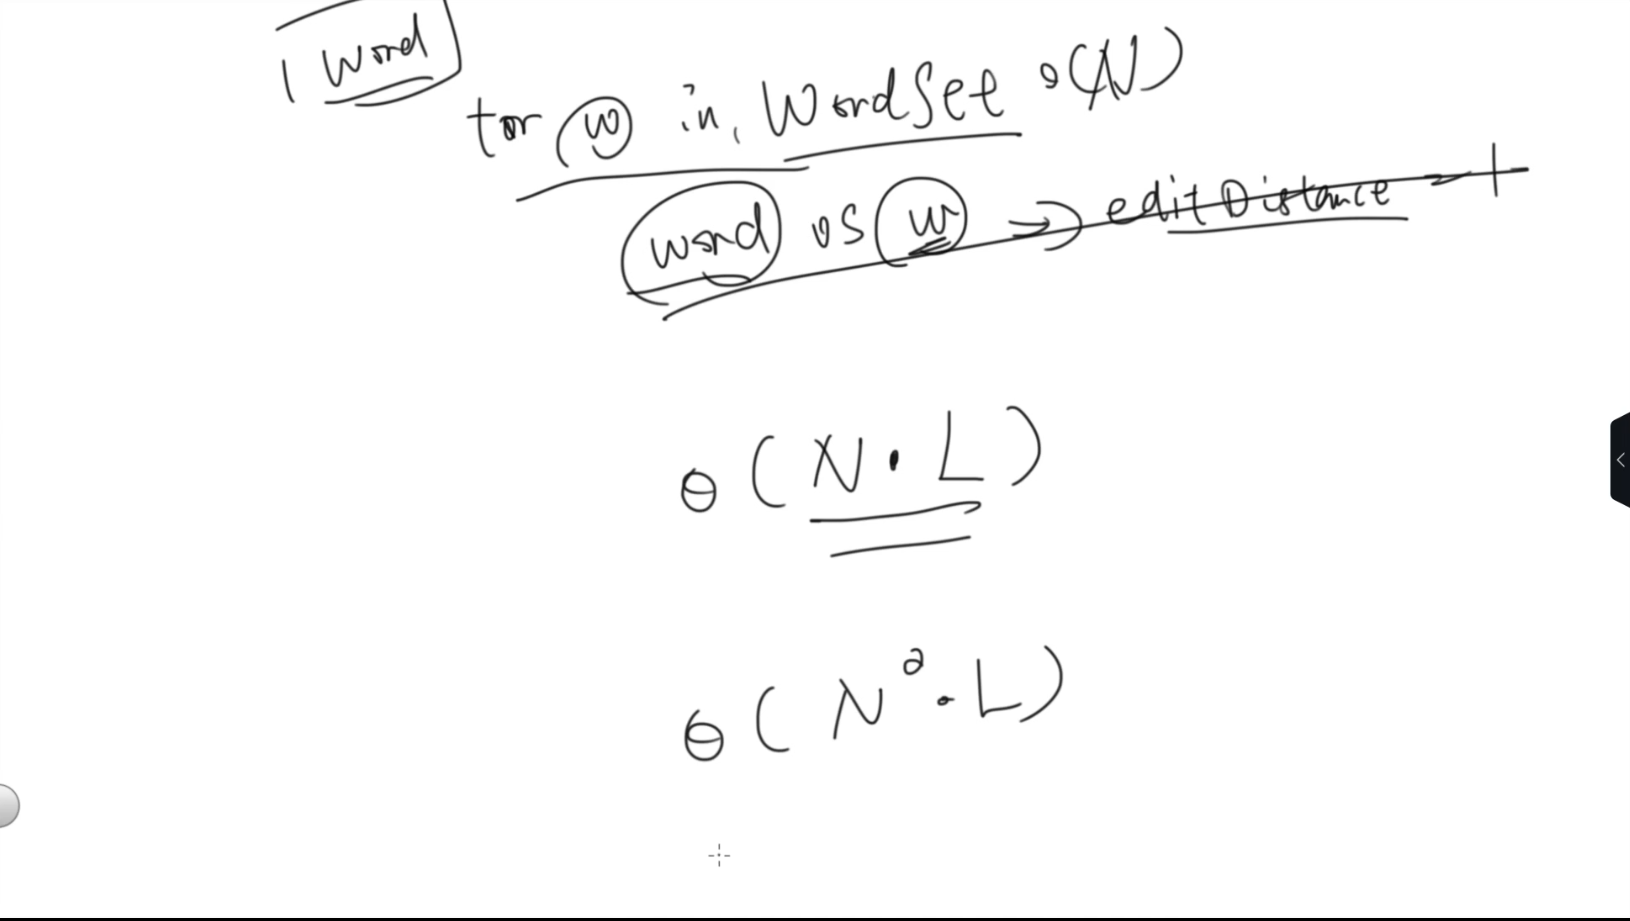 1 word
for w in WordSet O(N)
word vs w => editDistance = 1
θ(N·L)
θ(N²·L)